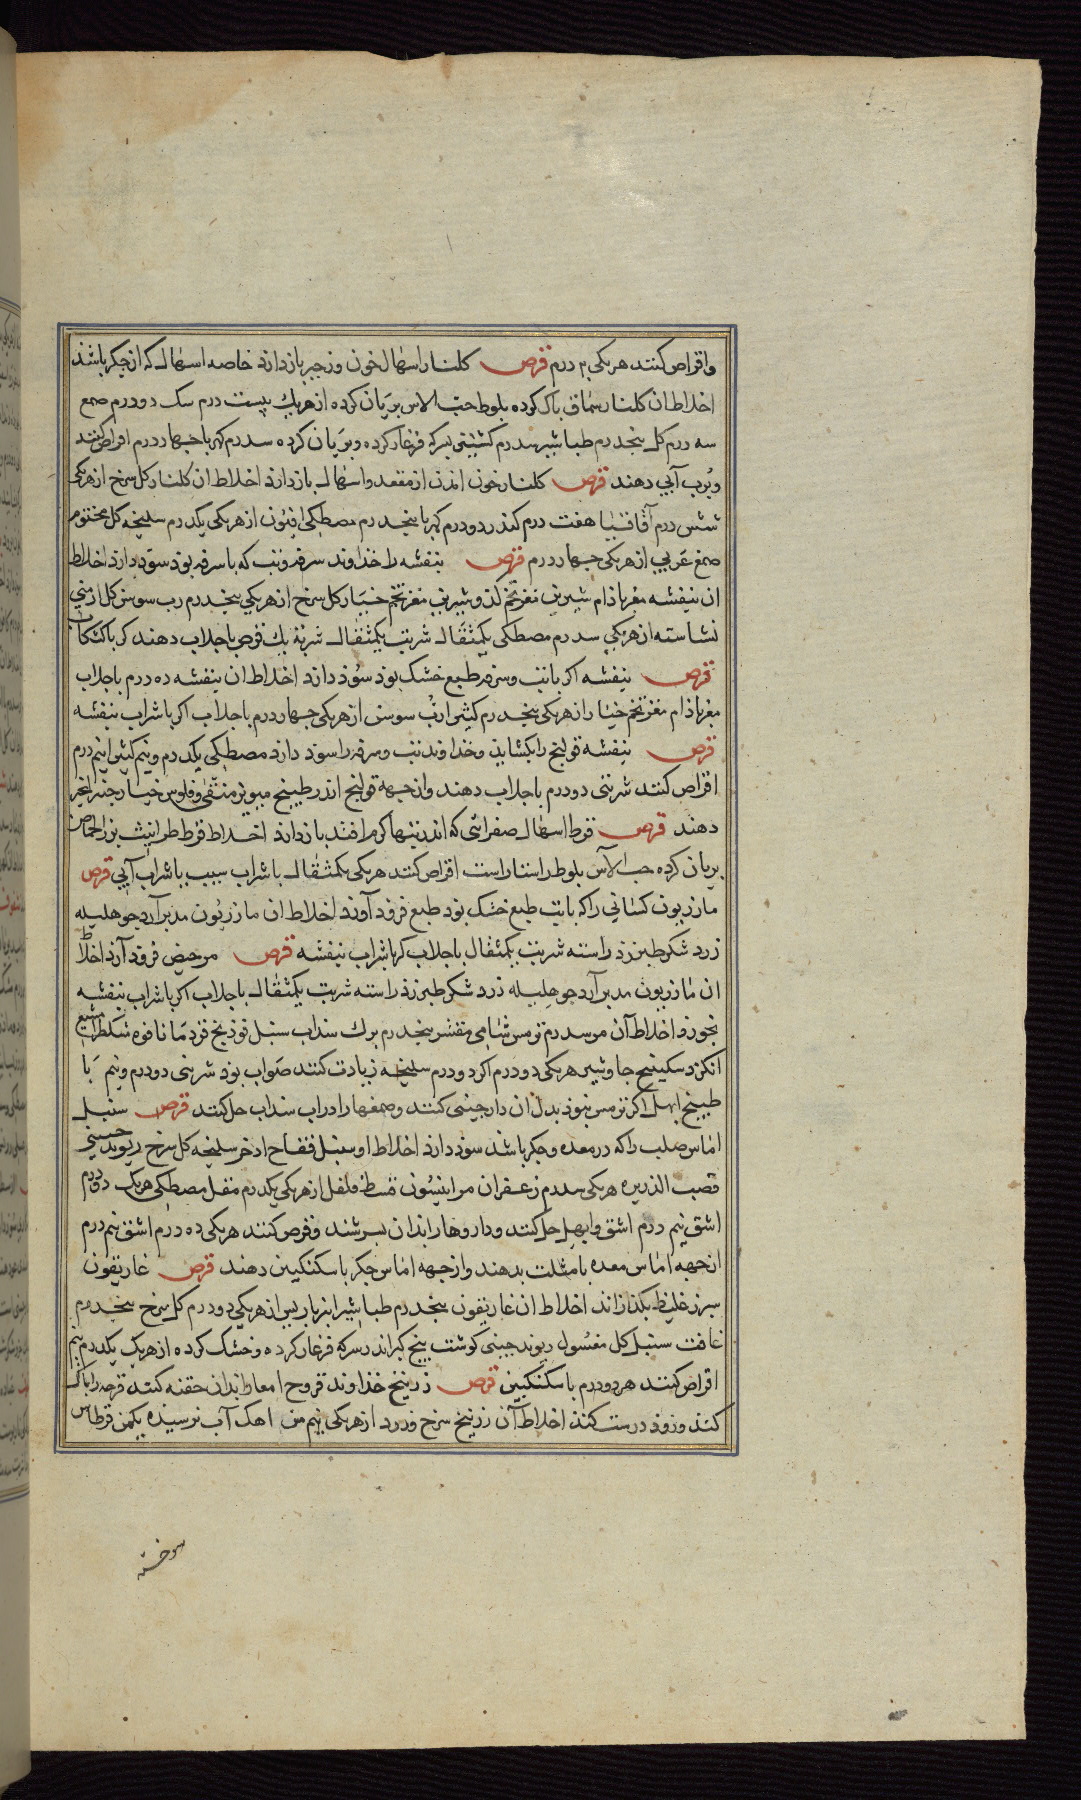 واقراص کنند هریکی ۲ درم قرص کلنار اسهال خون وزحیر بازدارد خاصه اسهال که از جکر باشد
اخلاط ان کلنار سماق باک کرده بلوط حب الاس بریان کرده از هریک بیست درم سک دو درم صمغ
سه درم کل بنجدرم طباشیر سدرم کشنیز بسرکه فرغار کرده وبریان کرده سدرم کهربا جهار درم اقراص کنند
وبرب آبی دهند قرص کلنار خون امدن از مقعد واسهال بازدارد اخلاط ان کلنار کل سرخ از هریکی
شش درم آقاقیا هفت درم کندر دو درم کهربا بنجدرم مصطکی افیون از هریکی یکدرم سلیخه کل مختوم
صمغ عربی از هریکی جهار درم قرص بنفشه خداوند سرفه وتب که با سرفه بوذ سوذ دارذ اخلاط
ان بنفشه مغز باذام شیرین مغز تخم کذوء شیرین مغز تخم خیار کل سرخ از هریکی بنجدرم رب سوس کل ارمنی
نشاسته از هریکی سدرم مصطکی یکمثقال شربت یکمثقال شربة یک قرص باجلاب دهند کر با کشکاب
قرص بنفشه اکر با تب وسرفه طبع خشک بوذ سوذ دارد اخلاط ان بنفشه ده درم باجلاب
مغز باذام مغز تخم خیار از هریکی بنجدرم کثیرا رب سوس از هریکی جهار درم باجلاب اکر باشراب بنفشه
قرص بنفشه قولنج را بکشاید وخداوند تب وسرفه را سوذ دارد مصطکی یکدرم ونیم کثیرا نیم درم
اقراص کنند شربتی دو درم باجلاب دهند واز جهة قولنج اندر طبیخ مویز منقی وفلوس خیار جنبر انجیر
دهند قرص قرط اسهال صفرائی که اندر تبها کرم افتد بازدارد اخلاط قرط طراثیث بزر الحماض
بریان کرده حب الآس بلوط راستاراست اقراص کنند هریکی یکمثقال باشراب سیب یا شراب آبی قرص
مازریون کسانی را که با تب طبع خشک بوذ طبع فروذ آورد اخلاط ان مازریون مدبر آرد جو هلیله
زرد شکر طبرزذ راسته شربت یکمثقال باجلاب کر باشراب بنفشه قرص مر حیض فروذ آرذ اخلاط
ان مازریون مدبر آرد جو هلیله زرد شکر طبرزذ راسته شربت یکمثقال باجلاب اکر باشراب بنفشه
بخورذ واخلاط آن مر سدرم ترمس شامی مقشر بنجدرم برک سذاب سنبل فوذنج فردمانا فوه مشکطرامشیع
انکزد سکبینج جاوشیر هریکی دو درم اکر دو درم سلیخه زیادت کنند صواب بوذ شربتی دو درم ونیم با
طبیخ ابهل اکر ترمس نبوذ بدل ان دارجینی کنند وصمغها را در اب سذاب حل کنند قرص سنبل
اماس صلب را که در معده وجکر باشد سوذ دارد اخلاط او سنبل فقاح اذخر سلیخه کل سرخ ریوند جینی
قصب الذریره هریکی سدرم زعفران مر انیسون قسط فلفل از هریکی یکدرم مقل مصطکی هریک دو درم
اشق نیم درم اشق وابهل حل کنند وداروها را بدان بسرشند وقرص کنند هریکی ده درم اشق نیم درم
از جهه اماس معده با مثلث بدهند واز جهه اماس جکر با سکنکبین دهند قرص غاریقون
سبرز غلیظ بکذازاند اخلاط ان غاریقون بنجدرم طباشیر انبرباریس از هریکی دو درم کل سرخ بنجدرم
غافت سنبل کل مغسول ریوند جینی کوشت بیخ کبر اندر سرکه فرغار کرده وخشک کرده از هریک یکدرم نیم
اقراص کنند هر دو درم با سکنکبین قرص زرنیخ خذاوند قروح امعا را بذان حقنه کنند قرحه را باک
کند وزوذ درست کند اخلاط آن زرنیخ سرخ وزرد از هریکی نیم من اهک آب نرسیذه یکمن قرطاس
سوخته